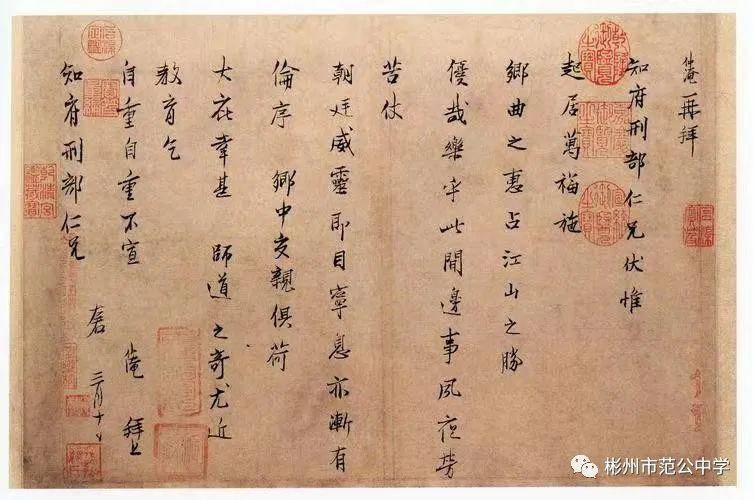 仲淹再拜
知府刑部仁兄伏惟
起居萬福施
鄉曲之惠占江山之勝
優哉樂乎此間邊事夙夜勞
苦仗
朝廷威靈即目寧息亦漸有
倫序 鄉中交親俱荷
大庇幸甚 師道之奇尤近
教育乞
自重自重不宣 仲淹 拜上
知府刑部仁兄 三月十日
彬州市范公中学